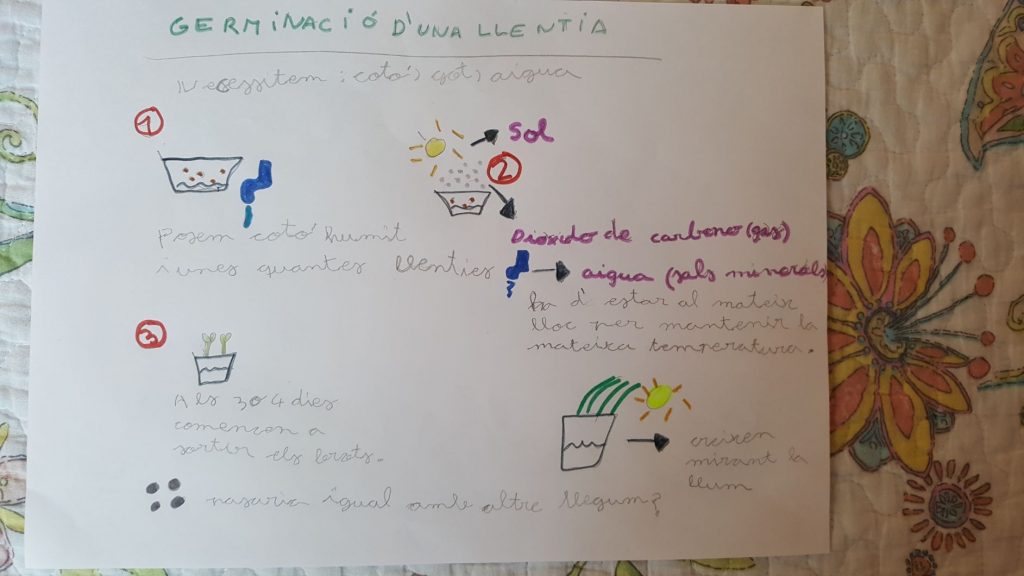 GERMINACIÓ D'UNA LLENTIA
Necessitem : cotó, got, aigua
1
Sol
2
Posem cotó humit
i unes quantes llenties
Dióxido de carbono (gas)
aigua (sals minerals)
ha d'estar al mateix
lloc per mantenir la
mateixa temperatura.
3
Als 3 o 4 dies
comencen a
sortir els brots.
creixen
mirant la
llum
pasaria igual amb altre llegum?